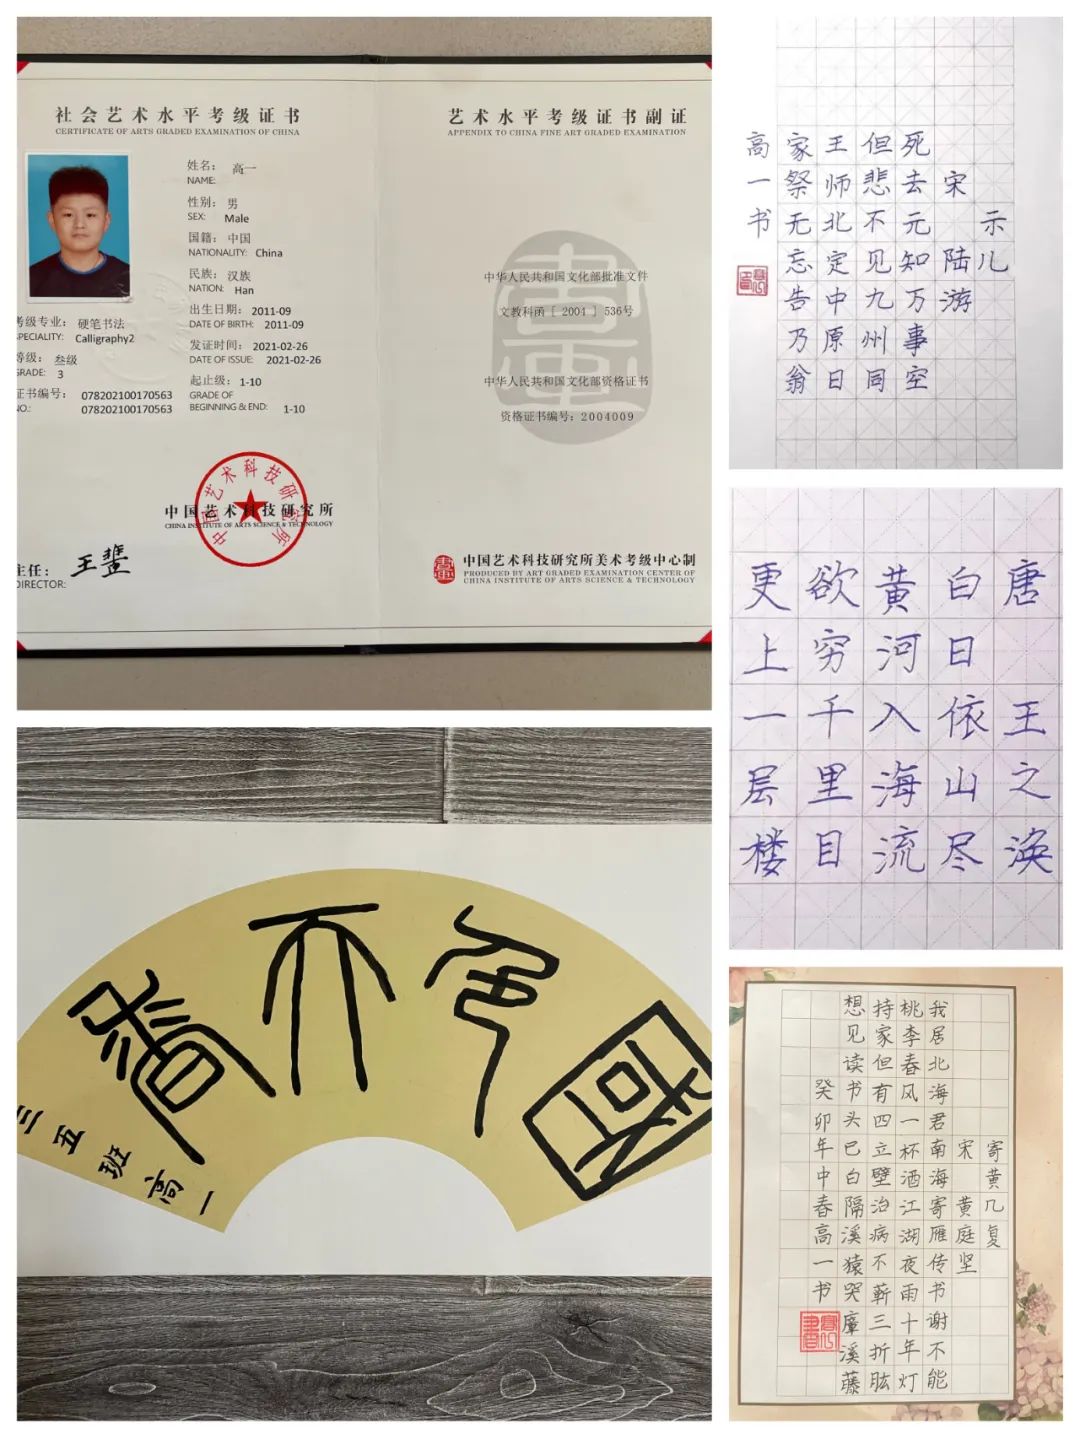 社会艺术水平考级证书
CERTIFICATE OF ARTS GRADED EXAMINATION OF CHINA
姓名： 高一
NAME:
性别： 男
SEX: Male
国籍： 中国
NATIONALITY: China
民族： 汉族
NATION: Han
出生日期： 2011-09
DATE OF BIRTH: 2011-09
发证时间： 2021-02-26
DATE OF ISSUE: 2021-02-26
起止级： 1-10
GRADE OF
BEGINNING & END: 1-10
考级专业： 硬笔书法
SPECIALITY: Calligraphy2
等级： 叁级
GRADE: 3
证书编号： 078202100170563
NO.: 078202100170563
中国艺术科技研究所
中国艺术科技研究所
CHINA INSTITUTE OF ARTS SCIENCE & TECHNOLOGY
主任：
DIRECTOR:
艺术水平考级证书副证
APPENDIX TO CHINA FINE ART GRADED EXAMINATION
中华人民共和国文化部批准文件
文教科函［2004］536号
中华人民共和国文化部资格证书
资格证书编号：2004009
中国艺术科技研究所美术考级中心制
PRODUCED BY ART GRADED EXAMINATION CENTER OF
CHINA INSTITUTE OF ARTS SCIENCE & TECHNOLOGY
示儿
宋陆游
死去元知万事空
但悲不见九州同
王师北定中原日
家祭无忘告乃翁
高一书
唐王之涣
白日依山尽
黄河入海流
欲穷千里目
更上一层楼
国色天香
三五班高一
寄黄几复
宋黄庭坚
我居北海君南海寄雁传书谢不能
桃李春风一杯酒江湖夜雨十年灯
持家但有四立壁治病不蕲三折肱
想见读书头已白隔溪猿哭瘴溪藤
癸卯年中春高一书